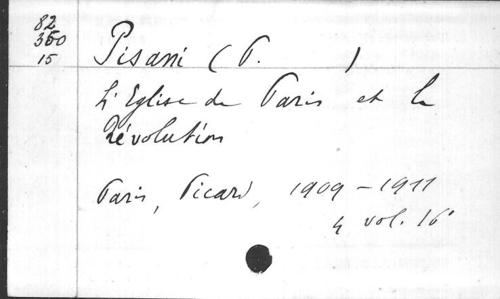 82
350
15
Pisani (P. )
L'Eglise de Paris et la
Révolution
Paris, Picard, 1909-1911
4 vol. 16°